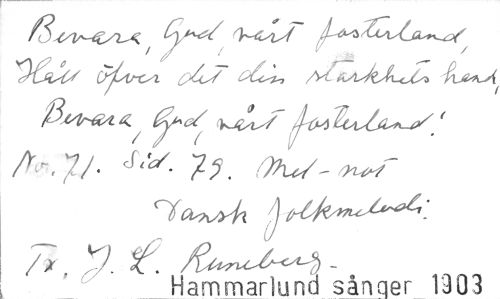 Bevara, Gud, vårt fosterland,
Håll öfver det din starkhets hand,
Bevara, Gud, vårt fosterland!
No. 71. Sid. 79. Mel-not
Dansk folkmelodi.
Tx. J. L. Runeberg.
Hammarlund sånger 1903